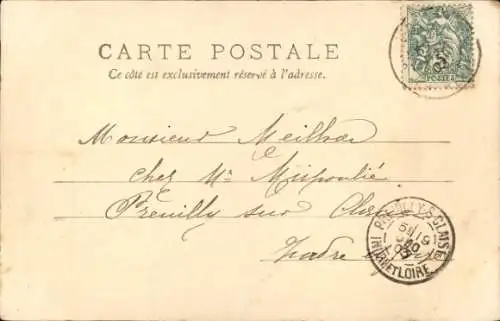 CARTE POSTALE
Ce côté est exclusivement réservé à l'adresse.
POSTES
Monsieur Meilhac
chez Mr
Preuilly sur Claise
Indre et Loire
PREUILLY-S-CLAISE
INDRE ET LOIRE